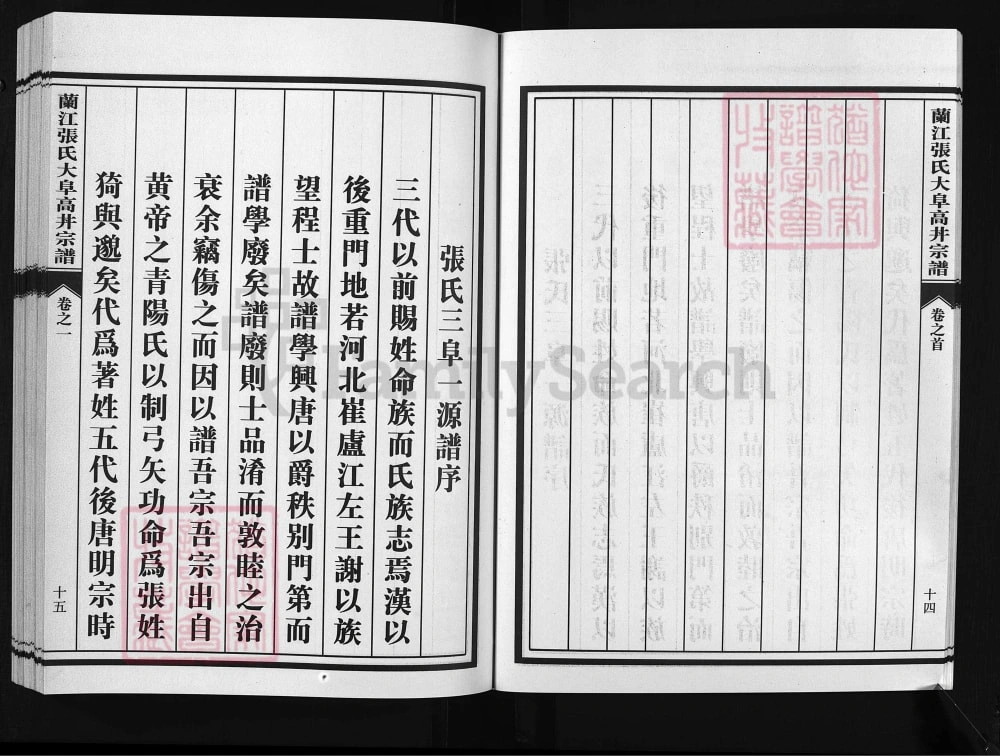 蘭江張氏大阜高井宗譜
卷之首
十四
張氏三阜一源譜序
三代以前賜姓命族而氏族志焉漢以
後重門地若河北崔盧江左王謝以族
望程士故譜學興唐以爵秩别門第而
譜學廢矣譜廢則士品淆而敦睦之治
衰余竊傷之而因以譜吾宗吾宗出自
黄帝之青陽氏以制弓矢功命爲張姓
猗與邈矣代爲著姓五代後唐明宗時
蘭江張氏大阜高井宗譜
卷之一
十五
FamilySearch